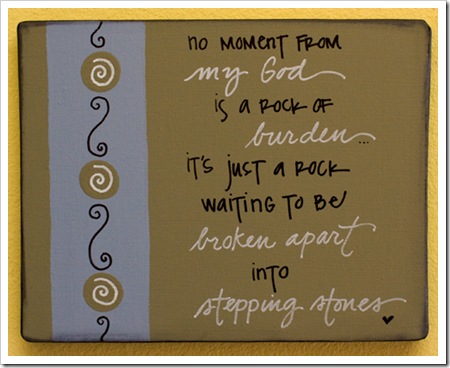 no moment from
my God
is a rock of
burden...
it's just a rock
waiting to be
broken apart
into
stepping stones